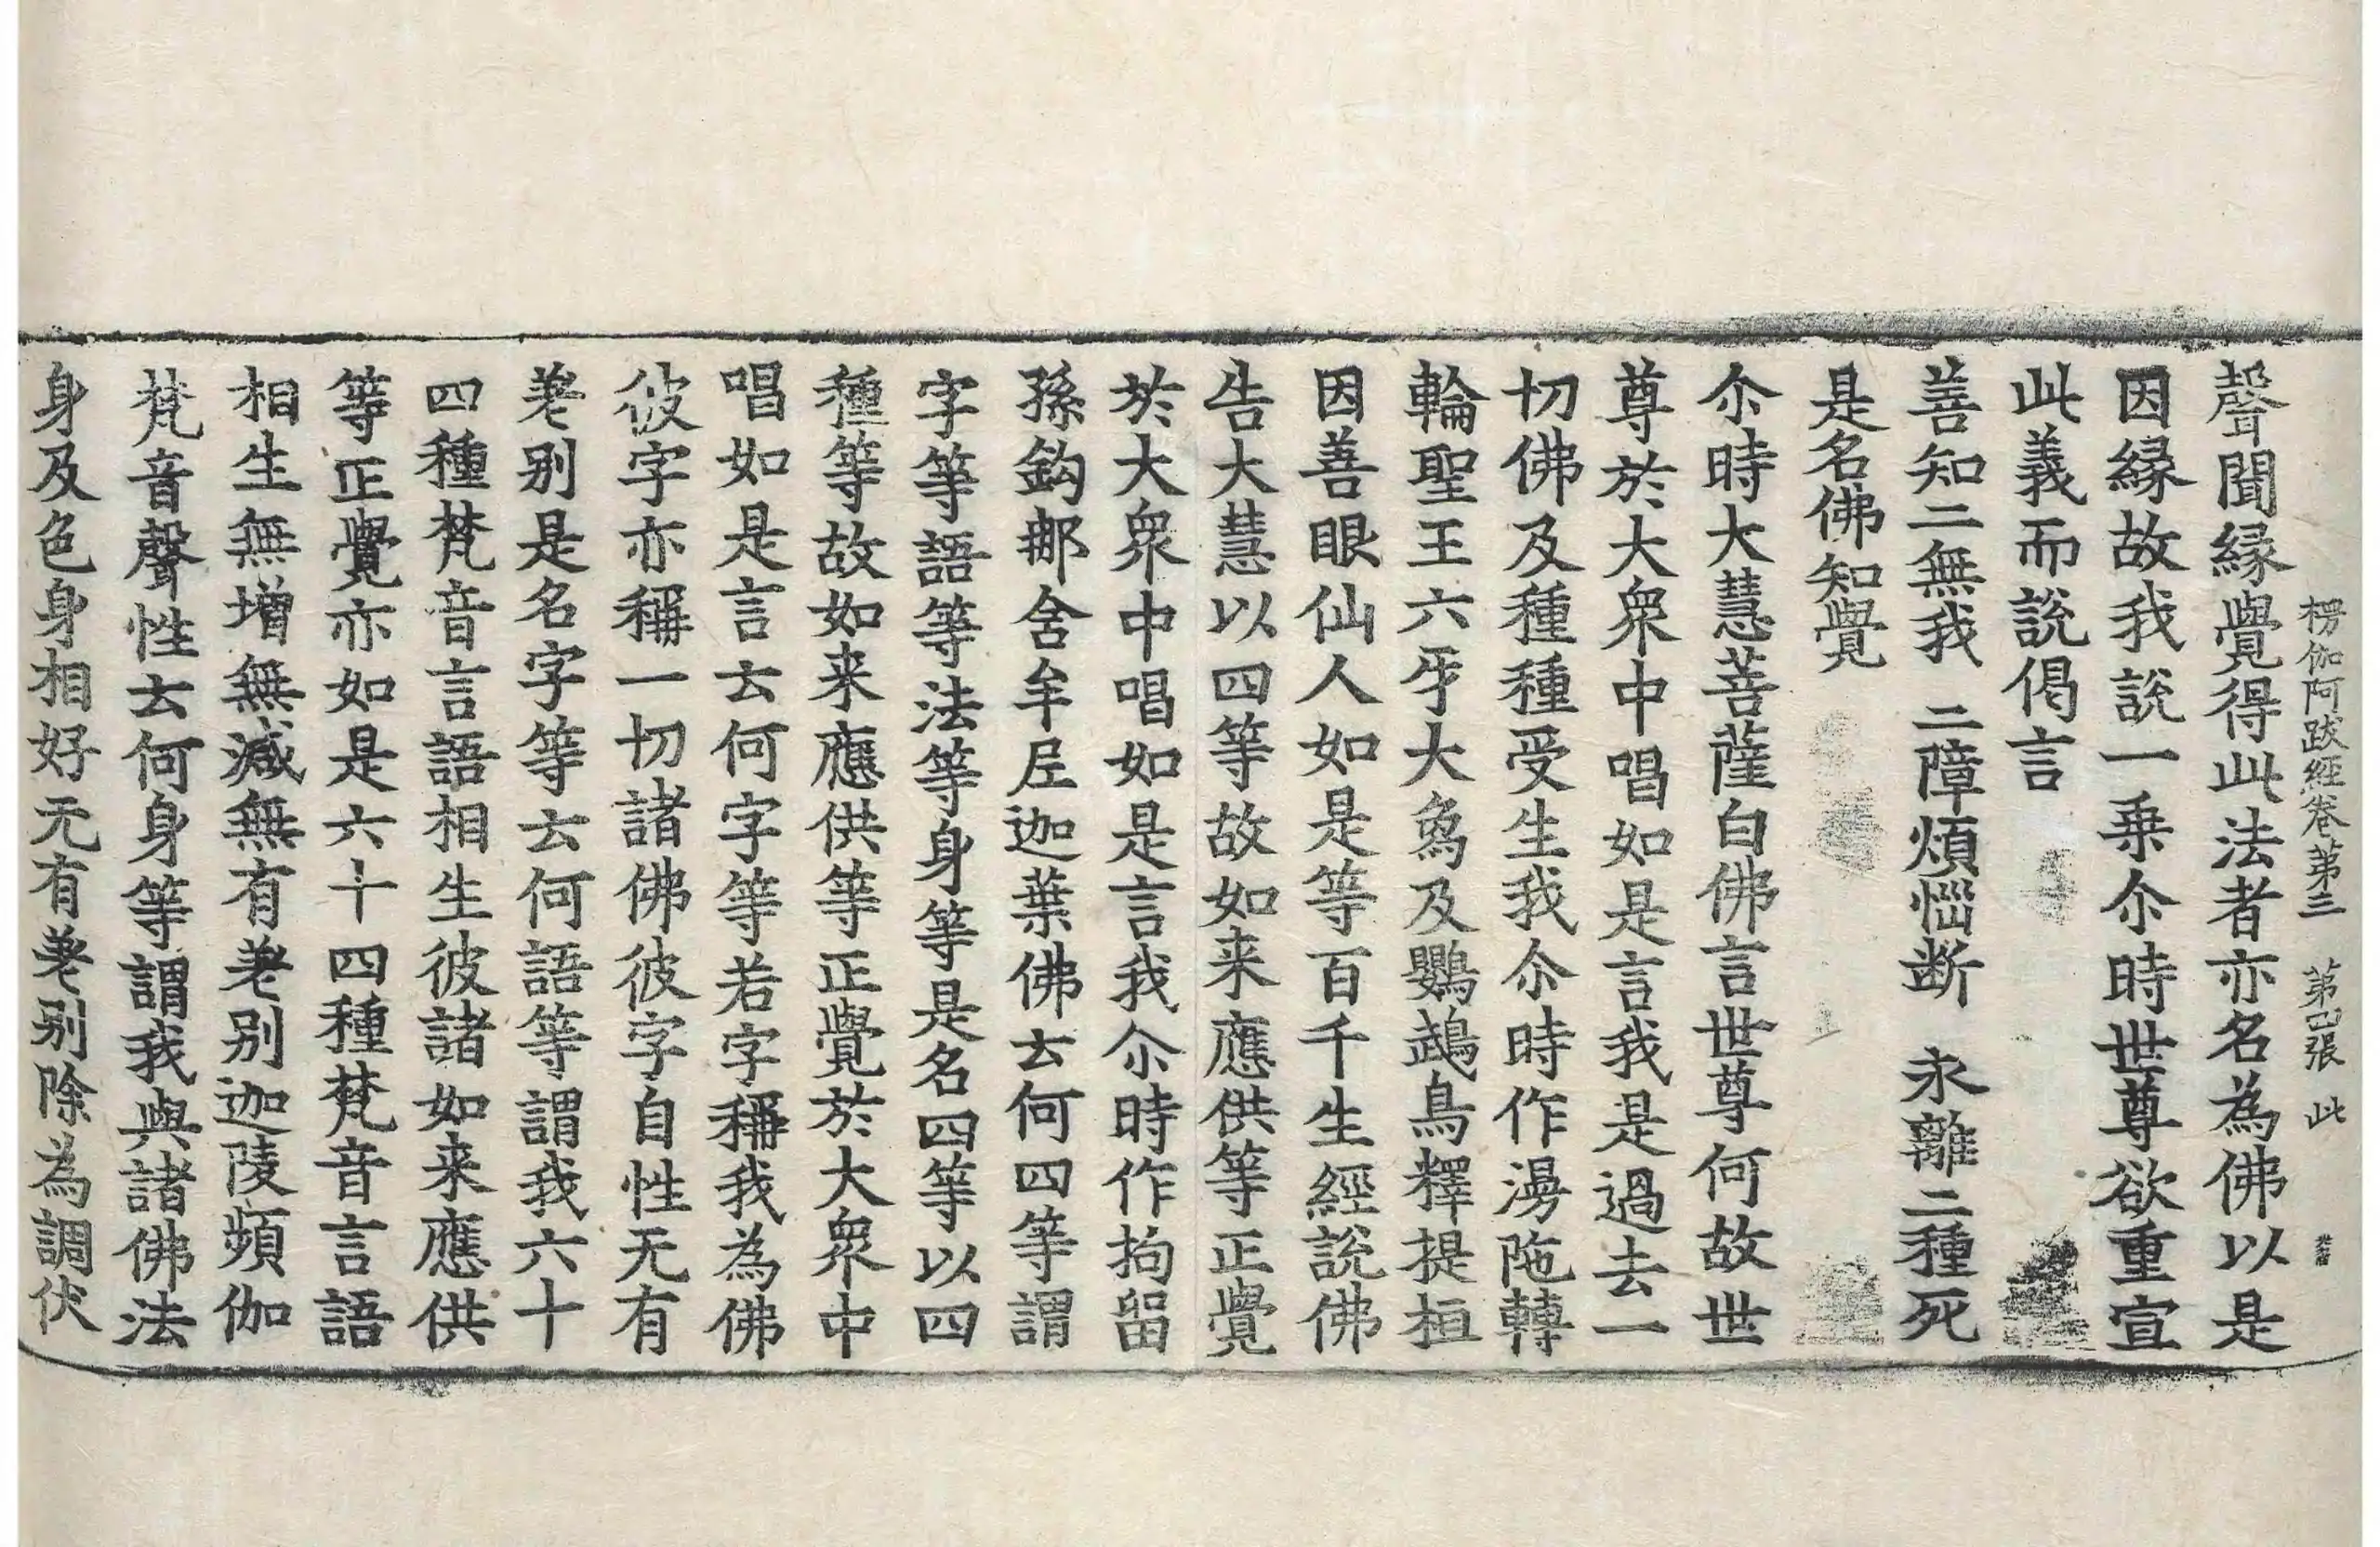 楞伽阿跋經卷第三　第四張　此
聲聞縁覺得此法者亦名為佛以是
因縁故我說一乗尒時世尊欲重宣
此義而說偈言
善知二無我　二障煩惱断　永離二種死
是名佛知覺
尒時大慧菩薩白佛言世尊何故世
尊於大衆中唱如是言我是過去一
切佛及種種受生我尒時作漫陁轉
輪聖王六牙大象及鸚鵡鳥釋提桓
因善眼仙人如是等百千生經說佛
告大慧以四等故如来應供等正覺
於大衆中唱如是言我尒時作拘留
孫鈎那舍牟尼迦葉佛云何四等謂
字等語等法等身等是名四等以四
種等故如来應供等正覺於大衆中
唱如是言云何字等若字稱我為佛
彼字亦稱一切諸佛彼字自性无有
差别是名字等云何語等謂我六十
四種梵音言語相生彼諸如来應供
等正覺亦如是六十四種梵音言語
相生無增無減無有差别迦陵頻伽
梵音聲性云何身等謂我與諸佛法
身及色身相好无有差别除為調伏